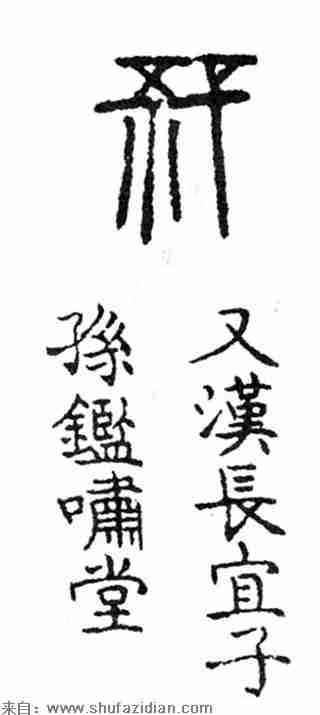 又漢長宜子
孫鑑嘯堂
来自：www.shufazidian.com